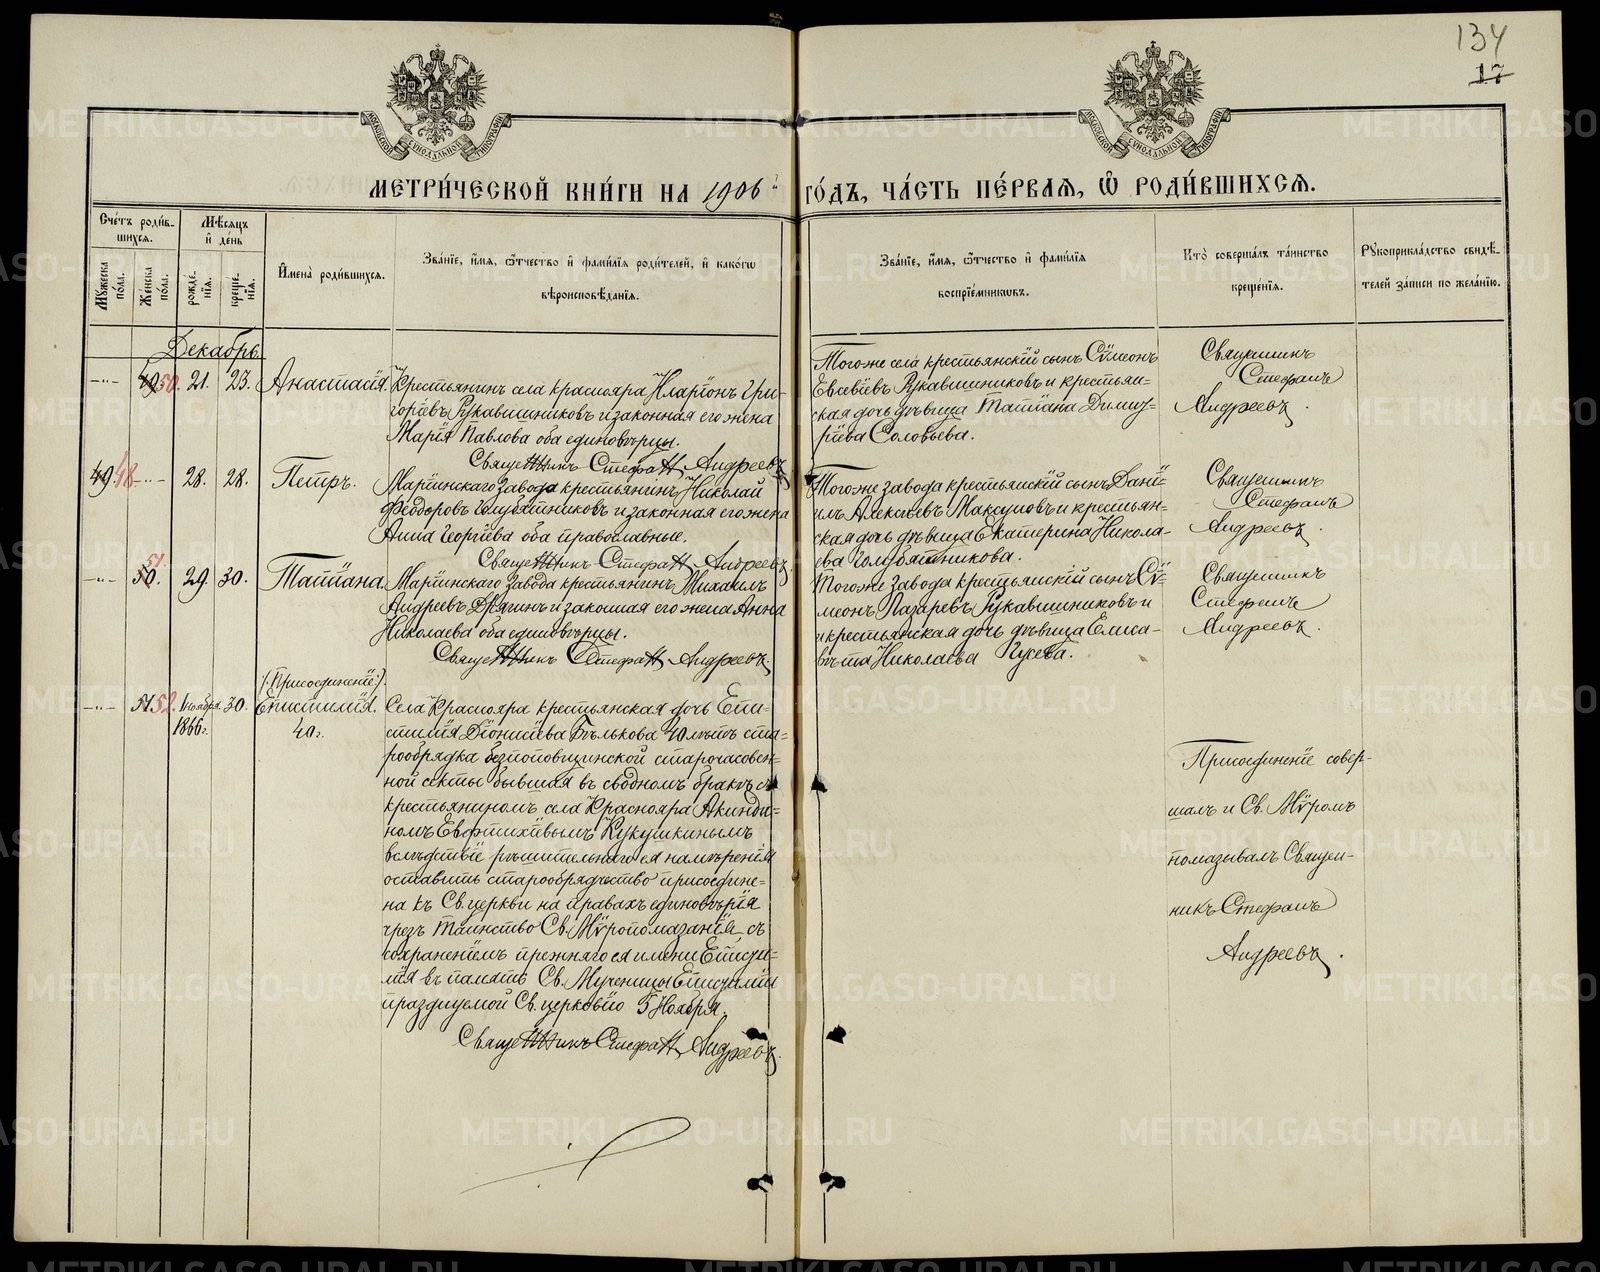 134
17
МОСКОВСКОЙ СѴНОДАЛЬНОЙ ТИПОГРАФІИ
МОСКОВСКОЙ СѴНОДАЛЬНОЙ ТИПОГРАФІИ
МЕТРИ́ЧЕСКОЙ КНИ́ГИ НА 1906 ГО́ДЪ, ЧА́СТЬ ПЕ́РВАЯ, Ѡ РОДИ́ВШИХСЯ.
Сче́тъ роди́в-
шихся.
Мѣсяцъ
и де́нь
Мꙋжеска по́ла.
Же́нска по́ла.
рожде́-
нїя.
креще́-
нїя.
Имена̀ роди́вшихся.
Зва́нїе, и́мя, ѻ҆́тчество и фами́лїя роди́телей, и како́гѡ
вѣроисповѣ́данїя.
Зва́нїе, и́мя, ѻ҆́тчество и фами́лїя
воспрїе́мникѡвъ.
Кто̀ соверша́лъ та́инство
креще́нїя.
Рꙋкоприкла́дство свидѣ́-
телей за́писи по жела́нїю.
Декабрь
-"- 50. 21. 23. Анастасія.
Крестьянинъ села Краснояра Иларіонъ Гри-
горіевъ Рукавишниковъ и законная его жена
Марія Павлова оба единовѣрцы.
Священникъ Стефанъ Андреевъ
Тогоже села крестьянскій сынъ Сѵмеонъ
Евсевіевъ Рукавишниковъ и крестьян-
ская дочь дѣвица Татіана Димит-
ріева Соловьева.
Священникъ
Стефанъ
Андреевъ.
49. 48 -"- 28. 28. Петръ.
Маріинскаго завода крестьянинъ Николай
Феодоровъ Голубятниковъ и законная его жена
Анна Георгіева оба православные.
Священникъ Стефанъ Андреевъ
Тогоже завода крестьянскій сынъ Дані-
илъ Алексѣевъ Максимовъ и крестьян-
ская дочь дѣвица Екатерина Никола-
ева Голубятникова.
Священникъ
Стефанъ
Андреевъ.
51
-"- 50. 29. 30. Татіана.
Маріинскаго завода крестьянинъ Михаилъ
Андреевъ Дрягинъ и законная его жена Анна
Николаева оба единовѣрцы.
Священникъ Стефанъ Андреевъ.
Тогоже завода крестьянскій сынъ Сѵ-
меонъ Лазаревъ Рукавишниковъ и
и крестьянская дочь дѣвица Елиса-
вѣта Николаева Гусева.
Священникъ
Стефанъ
Андреевъ.
(Присоединеніе).
-"- 51 52. 1 Ноября 30. Епистимія.
1866г. 40г.
Села Краснояра крестьянская дочь Епи-
стимія Діонисіева Бѣлькова 40 лѣтъ ста-
рообрядка безпоповщинской старочасовен-
ной секты бывшая въ сводномъ бракѣ съ
крестьяниномъ села Краснояра Акинди-
номъ Евфтихіевымъ Кукушкинымъ
вслѣдствіе рѣшительнаго ея намѣренія
оставить старообрядчество присоедине-
на къ Св. церкви на правахъ единовѣрія
чрезъ таинство Св. Мѵропомазанія съ
сохраненіемъ прежняго ея имени Еписти-
мія въ память Св. Мученицы Епистиміи
празднуемой Св. церковію 5 Ноября.
Священникъ Стефанъ Андреевъ.
Присоединеніе совер-
шалъ и Св. Мѵромъ
помазывалъ Священ-
никъ Стефанъ
Андреевъ.
METRIKI.GASO-URAL.RU